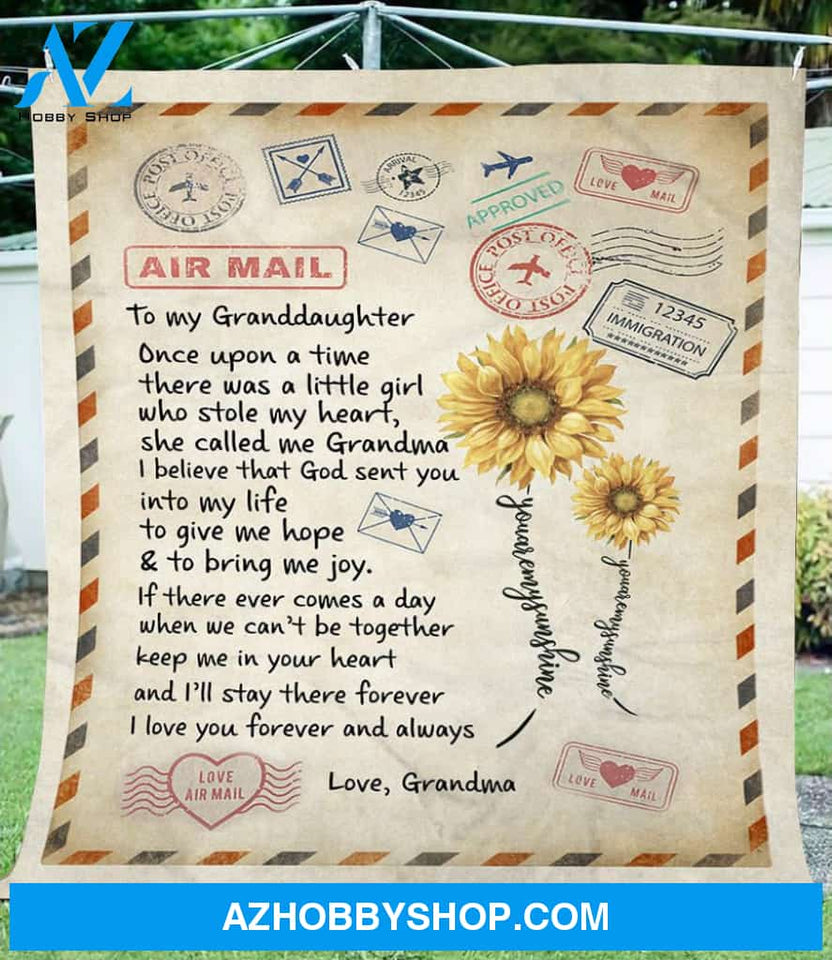 AZ
HOBBY SHOP
POST OFFICE POST OFFICE
ARRIVAL
12345
APPROVED
LOVE MAIL
AIR MAIL
POST OFFICE POST OFFICE
12345
IMMIGRATION
************
To my Granddaughter
Once upon a time
there was a little girl
who stole my heart,
she called me Grandma
I believe that God sent you
into my life
to give me hope
& to bring me joy.
If there ever comes a day
when we can't be together
keep me in your heart
and I'll stay there forever
I love you forever and always
youaremysunshine
youaremysunshine
LOVE
AIR MAIL
Love, Grandma
LOVE MAIL
AZHOBBYSHOP.COM